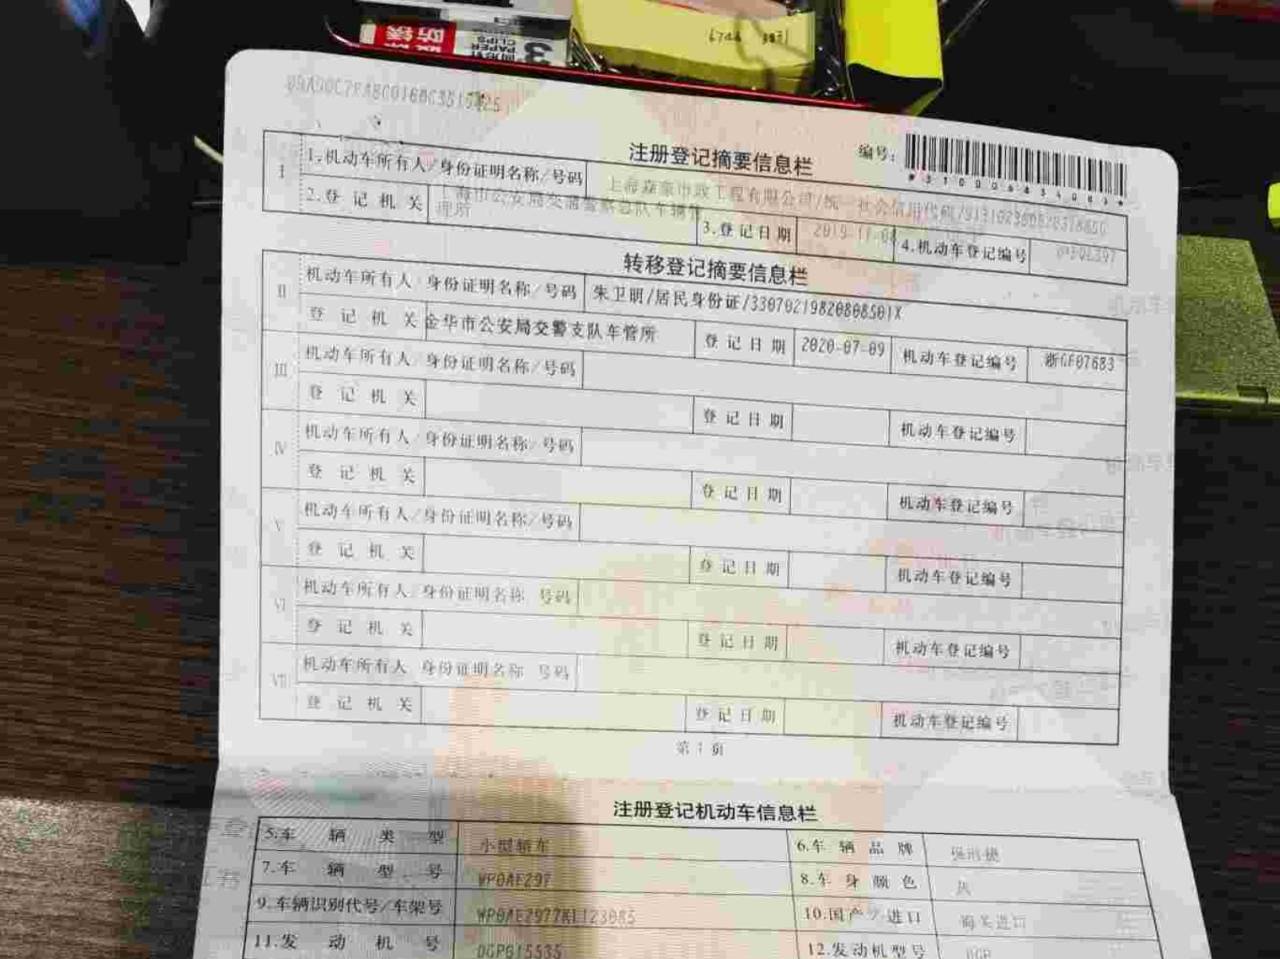 防锈
PAPER
CLIPS
3
注册登记摘要信息栏
编号:
I
1.机动车所有人/身份证明名称/号码
2.登记机关
上海市公安局交通警察总队车辆管理所
3.登记日期
4.机动车登记编号
转移登记摘要信息栏
II
机动车所有人/身份证明名称/号码
朱卫明/居民身份证/33070219820808501X
登记机关
金华市公安局交警支队车管所
登记日期
2020-07-09
机动车登记编号
浙GF07683
III
机动车所有人/身份证明名称/号码
登记机关
登记日期
机动车登记编号
IV
机动车所有人/身份证明名称/号码
登记机关
登记日期
机动车登记编号
V
机动车所有人/身份证明名称/号码
登记机关
登记日期
机动车登记编号
VI
机动车所有人/身份证明名称/号码
登记机关
登记日期
机动车登记编号
VII
机动车所有人/身份证明名称/号码
登记机关
登记日期
机动车登记编号
第1页
注册登记机动车信息栏
5.车辆类型
小型轿车
6.车辆品牌
保时捷
7.车辆型号
WP0AE297
8.车身颜色
灰
9.车辆识别代号/车架号
10.国产/进口
海关进口
11.发动机号
12.发动机型号